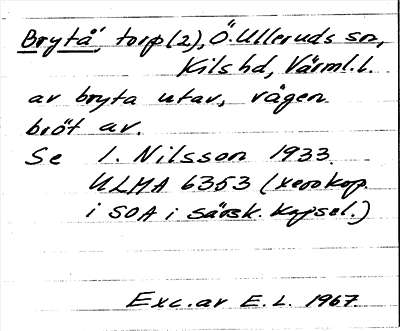 Brytå, torp (2), Ö. Ulleruds sn,
Kils hd, Värml. l.
av bryta utav, vägen
bröt av.
Se I. Nilsson 1933.
ULMA 6353 (xerokop.
i SOA i särsk. kapsel.)
Exc. av E. L. 1967.